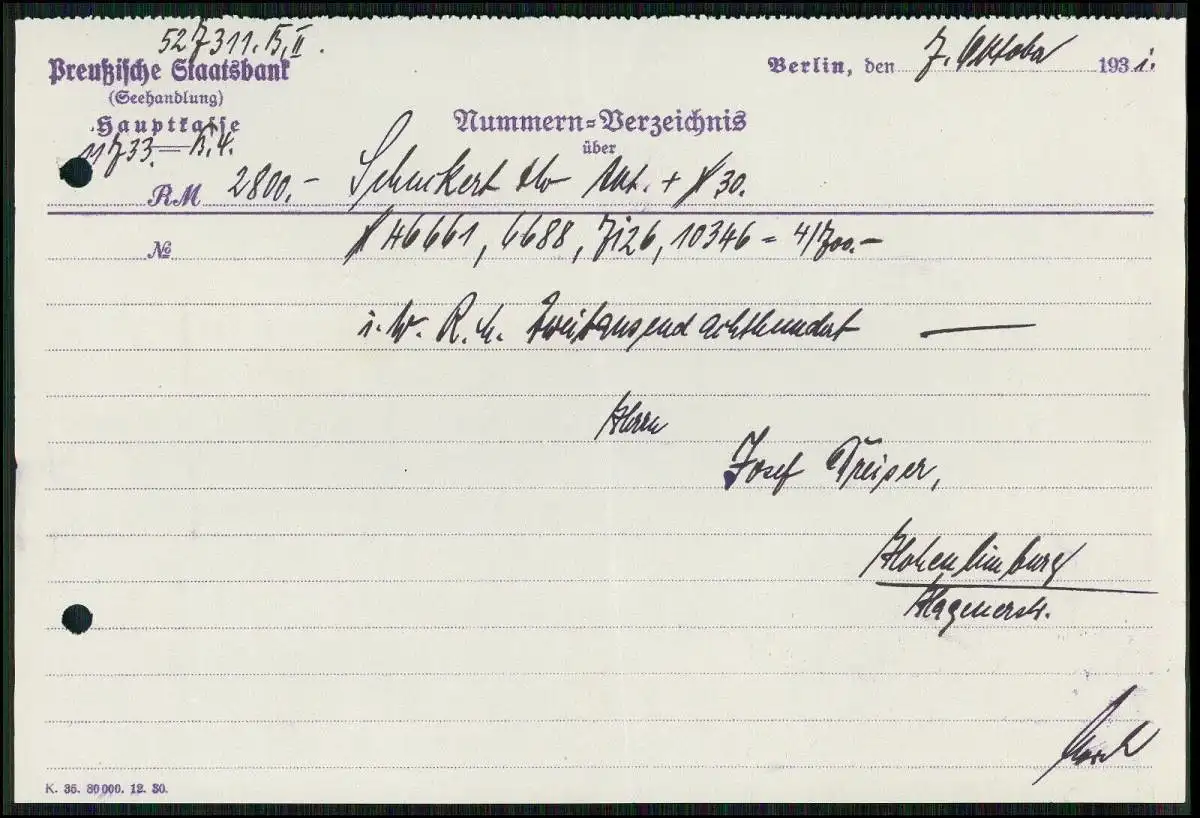 527311. B, II.
Preußische Staatsbank
(Seehandlung)
Hauptkasse
11733. B, 4.
Berlin, den 7. Oktober 1931.
Nummern-Verzeichnis
über
RM 2800.- Schuckert Akt. + 30.
№ 46661, 6688, 7126, 10346 = 4/700.-
i. W. R. M. Zweitausendachthundert
Herrn
Josef
Hohenlimburg
Hagenerstr.
K. 35. 80000. 12. 30.